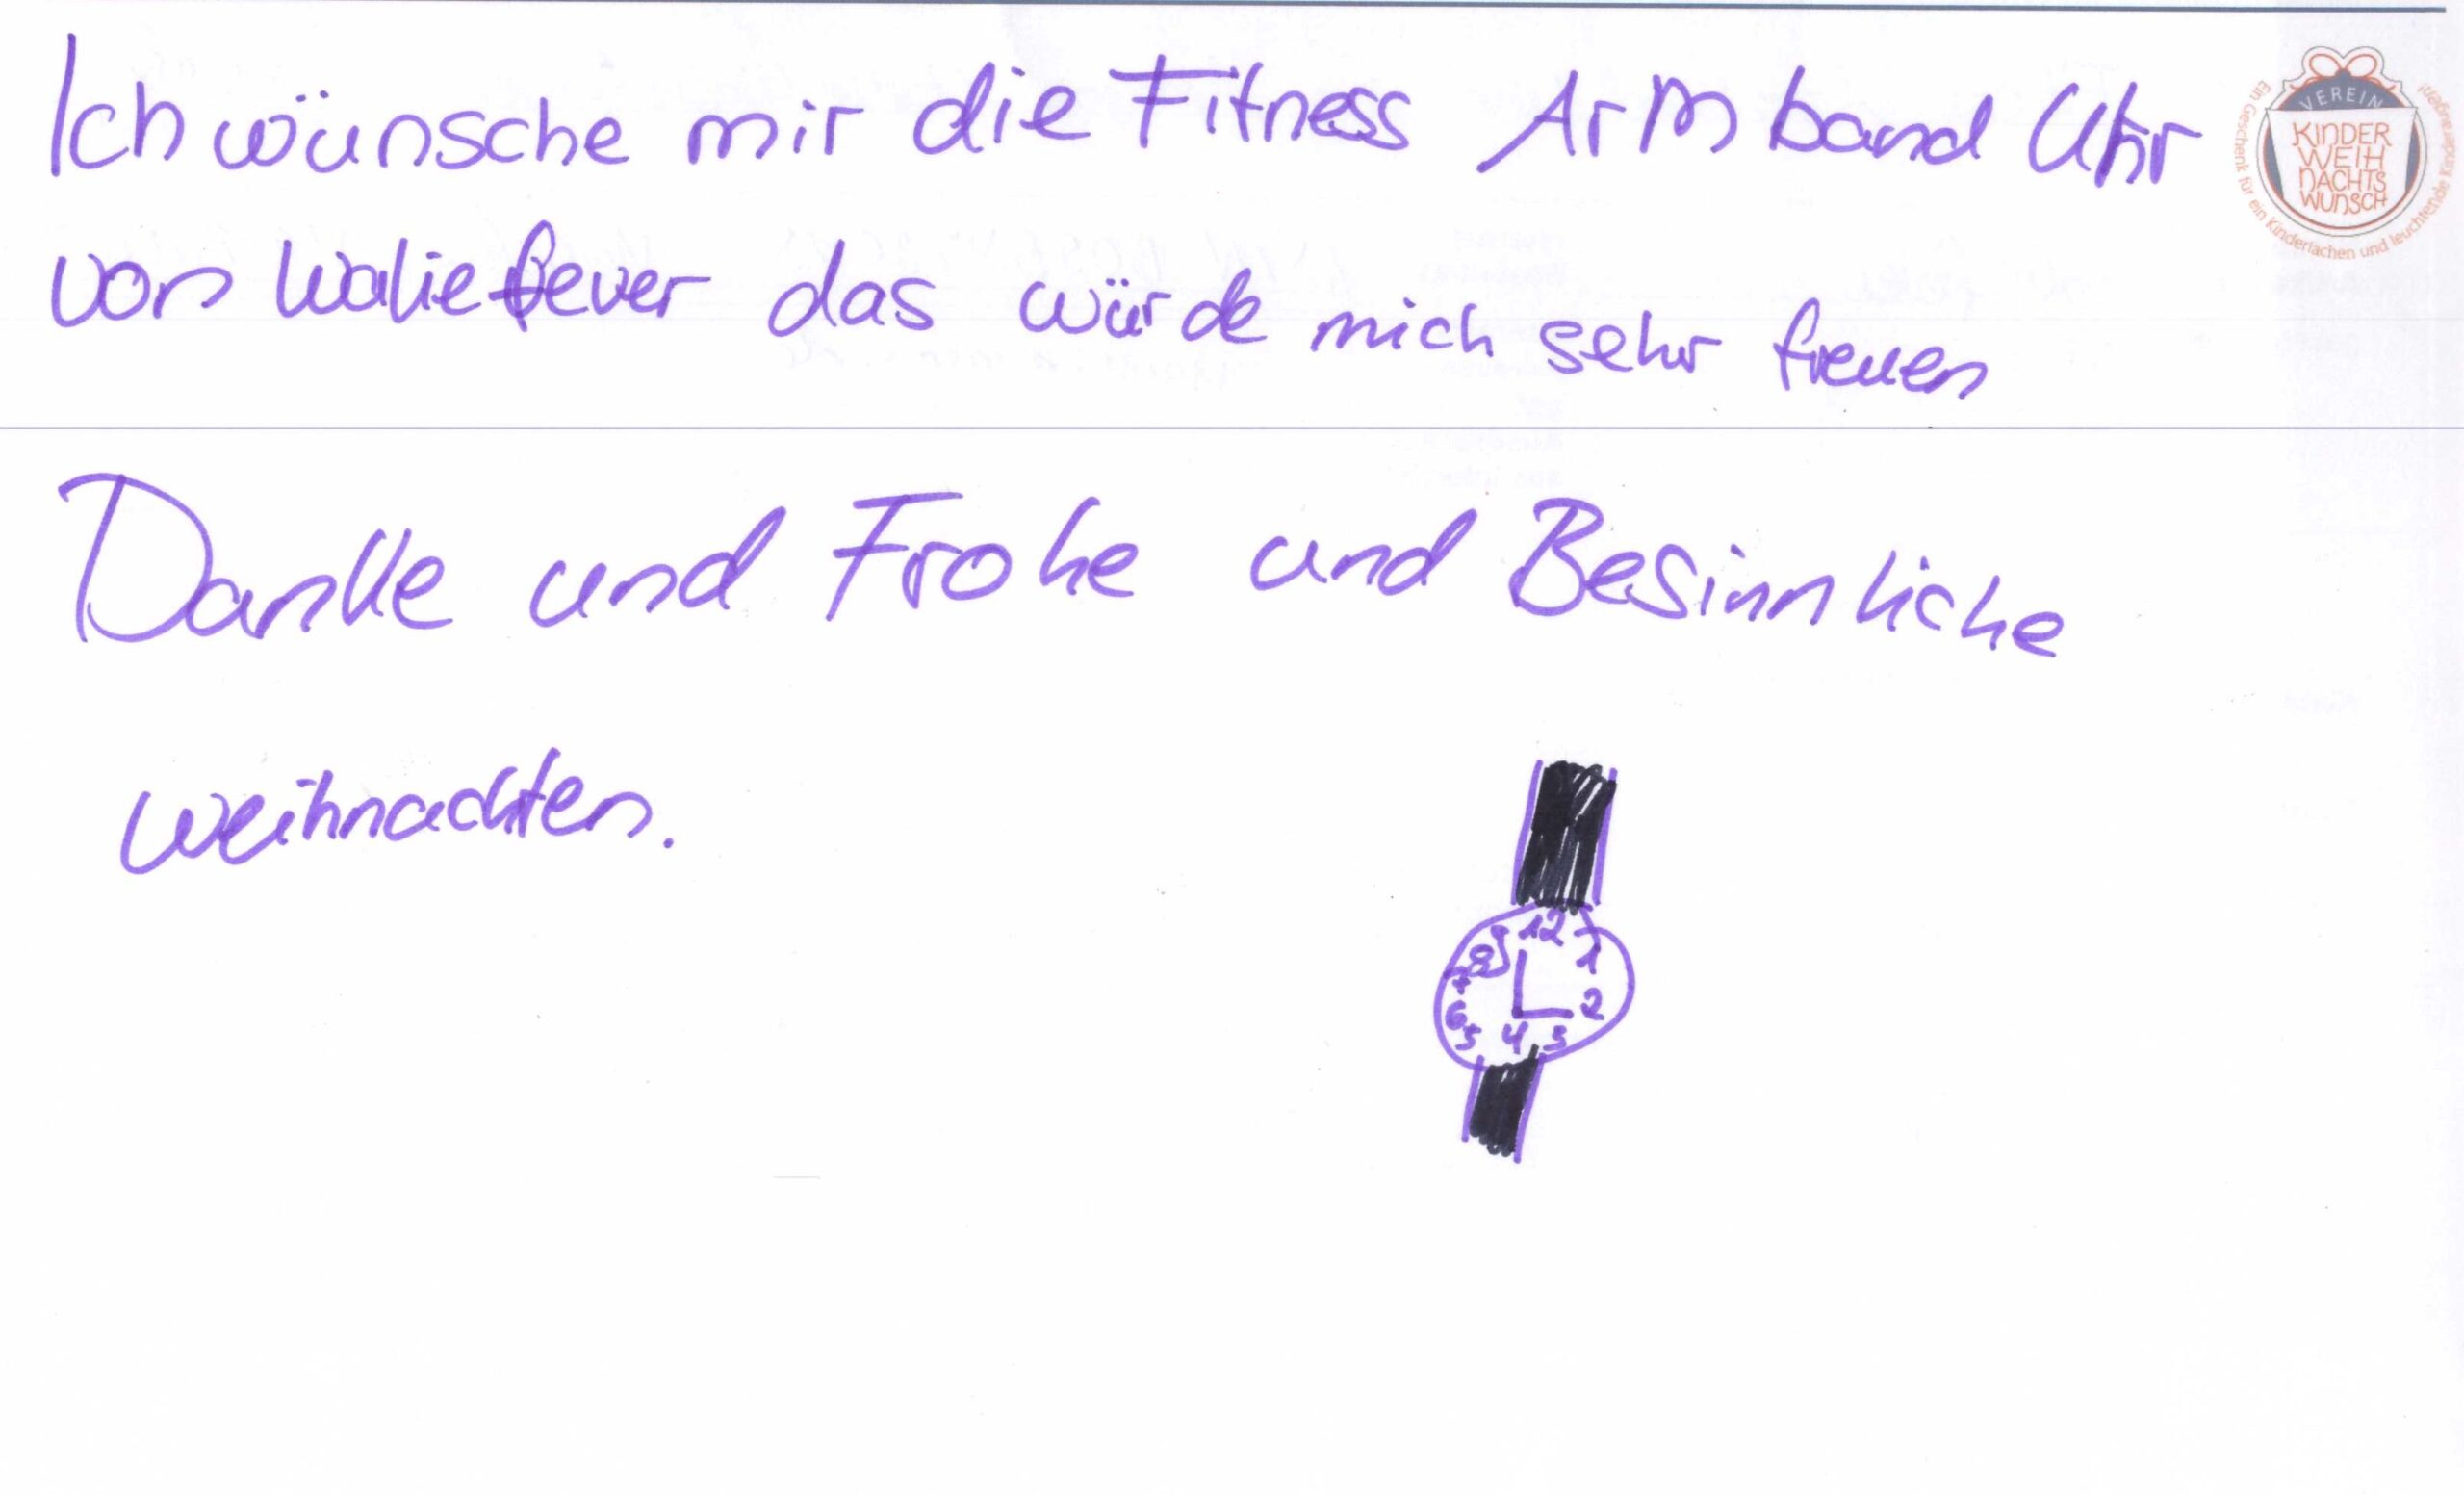 Ich wünsche mir die Fitness Armband Uhr
von Waliefever das würde mich sehr freuen
Danke und Frohe und Besinnliche
weihnachten.
VEREIN
KINDER
WEIH
NACHTS
WUNSCH
Ein Geschenk für ein Kinderlachen und leuchtende Kinderaugen!
12
1
2
3
4
5
6
7
8
9